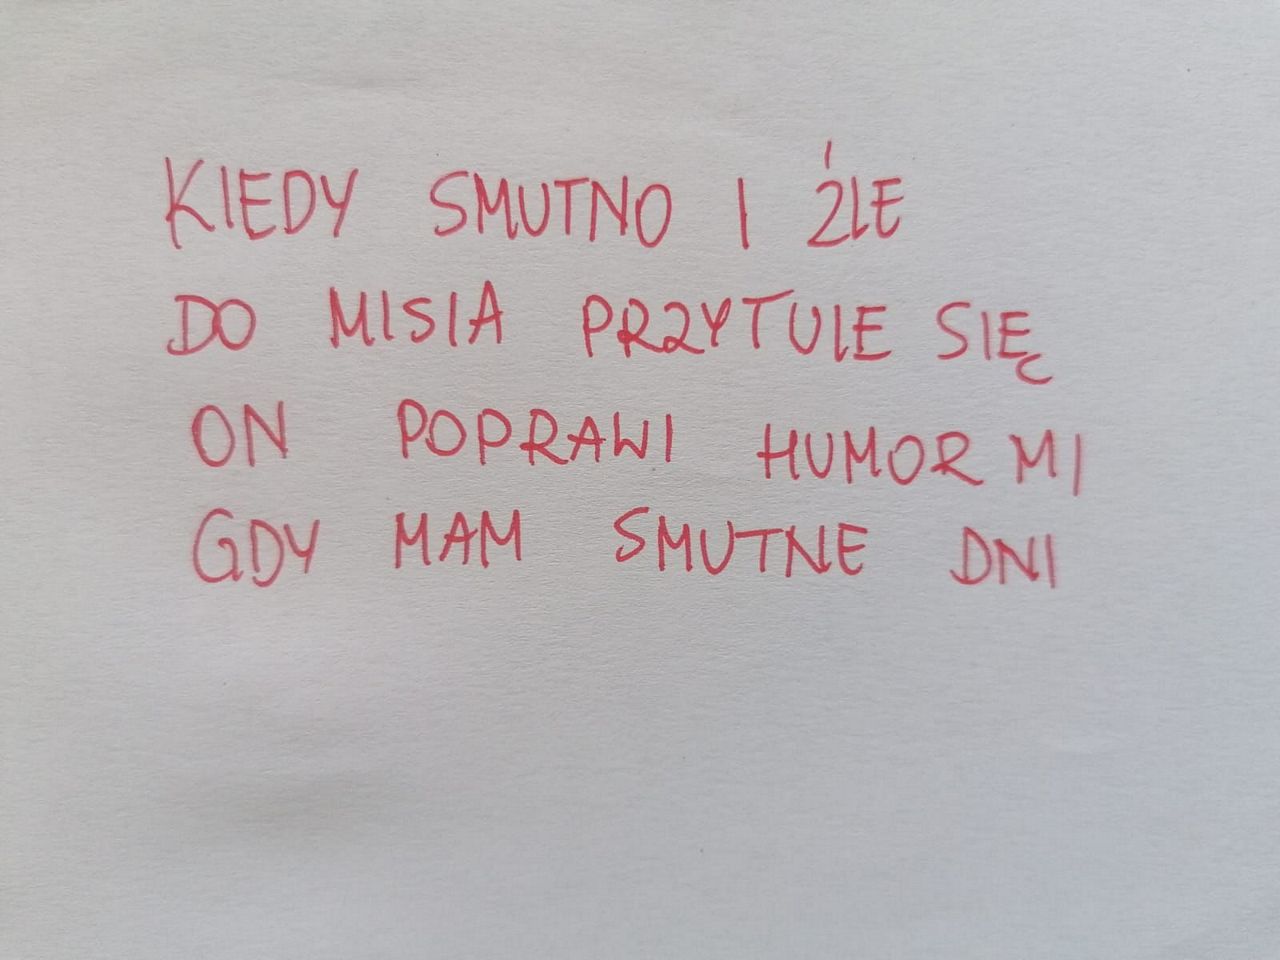 KIEDY SMUTNO I ŹLE
DO MISIA PRZYTULE SIĘ
ON POPRAWI HUMOR MI
GDY MAM SMUTNE DNI